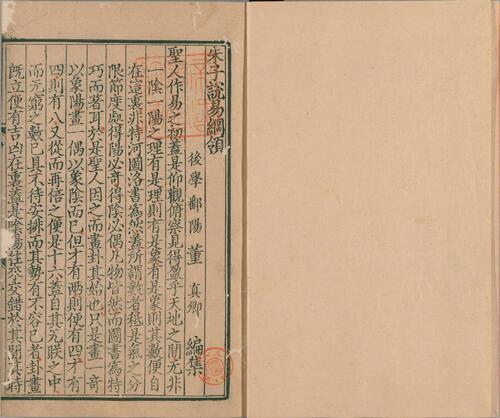 朱子說易綱領
後學鄱陽董真卿編集
聖人作易之初蓋是仰觀俯察見得盈乎天地之間无非
一陰一陽之理有是理則有是象有是象則其數便自
在這裏非特河圖洛書為然蓋所謂數者秪是氣之分
限節度處得陽必竒得陰必偶凡物皆然而圖書為特
巧而著耳於是聖人因之而畫卦其始也只是畫一竒
以象陽畫一偶以象陰而已但才有兩則便有四才有
四則有八又從而再倍之便是十六蓋自其无眹之中
而无窮之數已具不待安排而其勢有不容已者卦畫
旣立便有吉凶在裏蓋是陰昜徃來交錯於其間其時